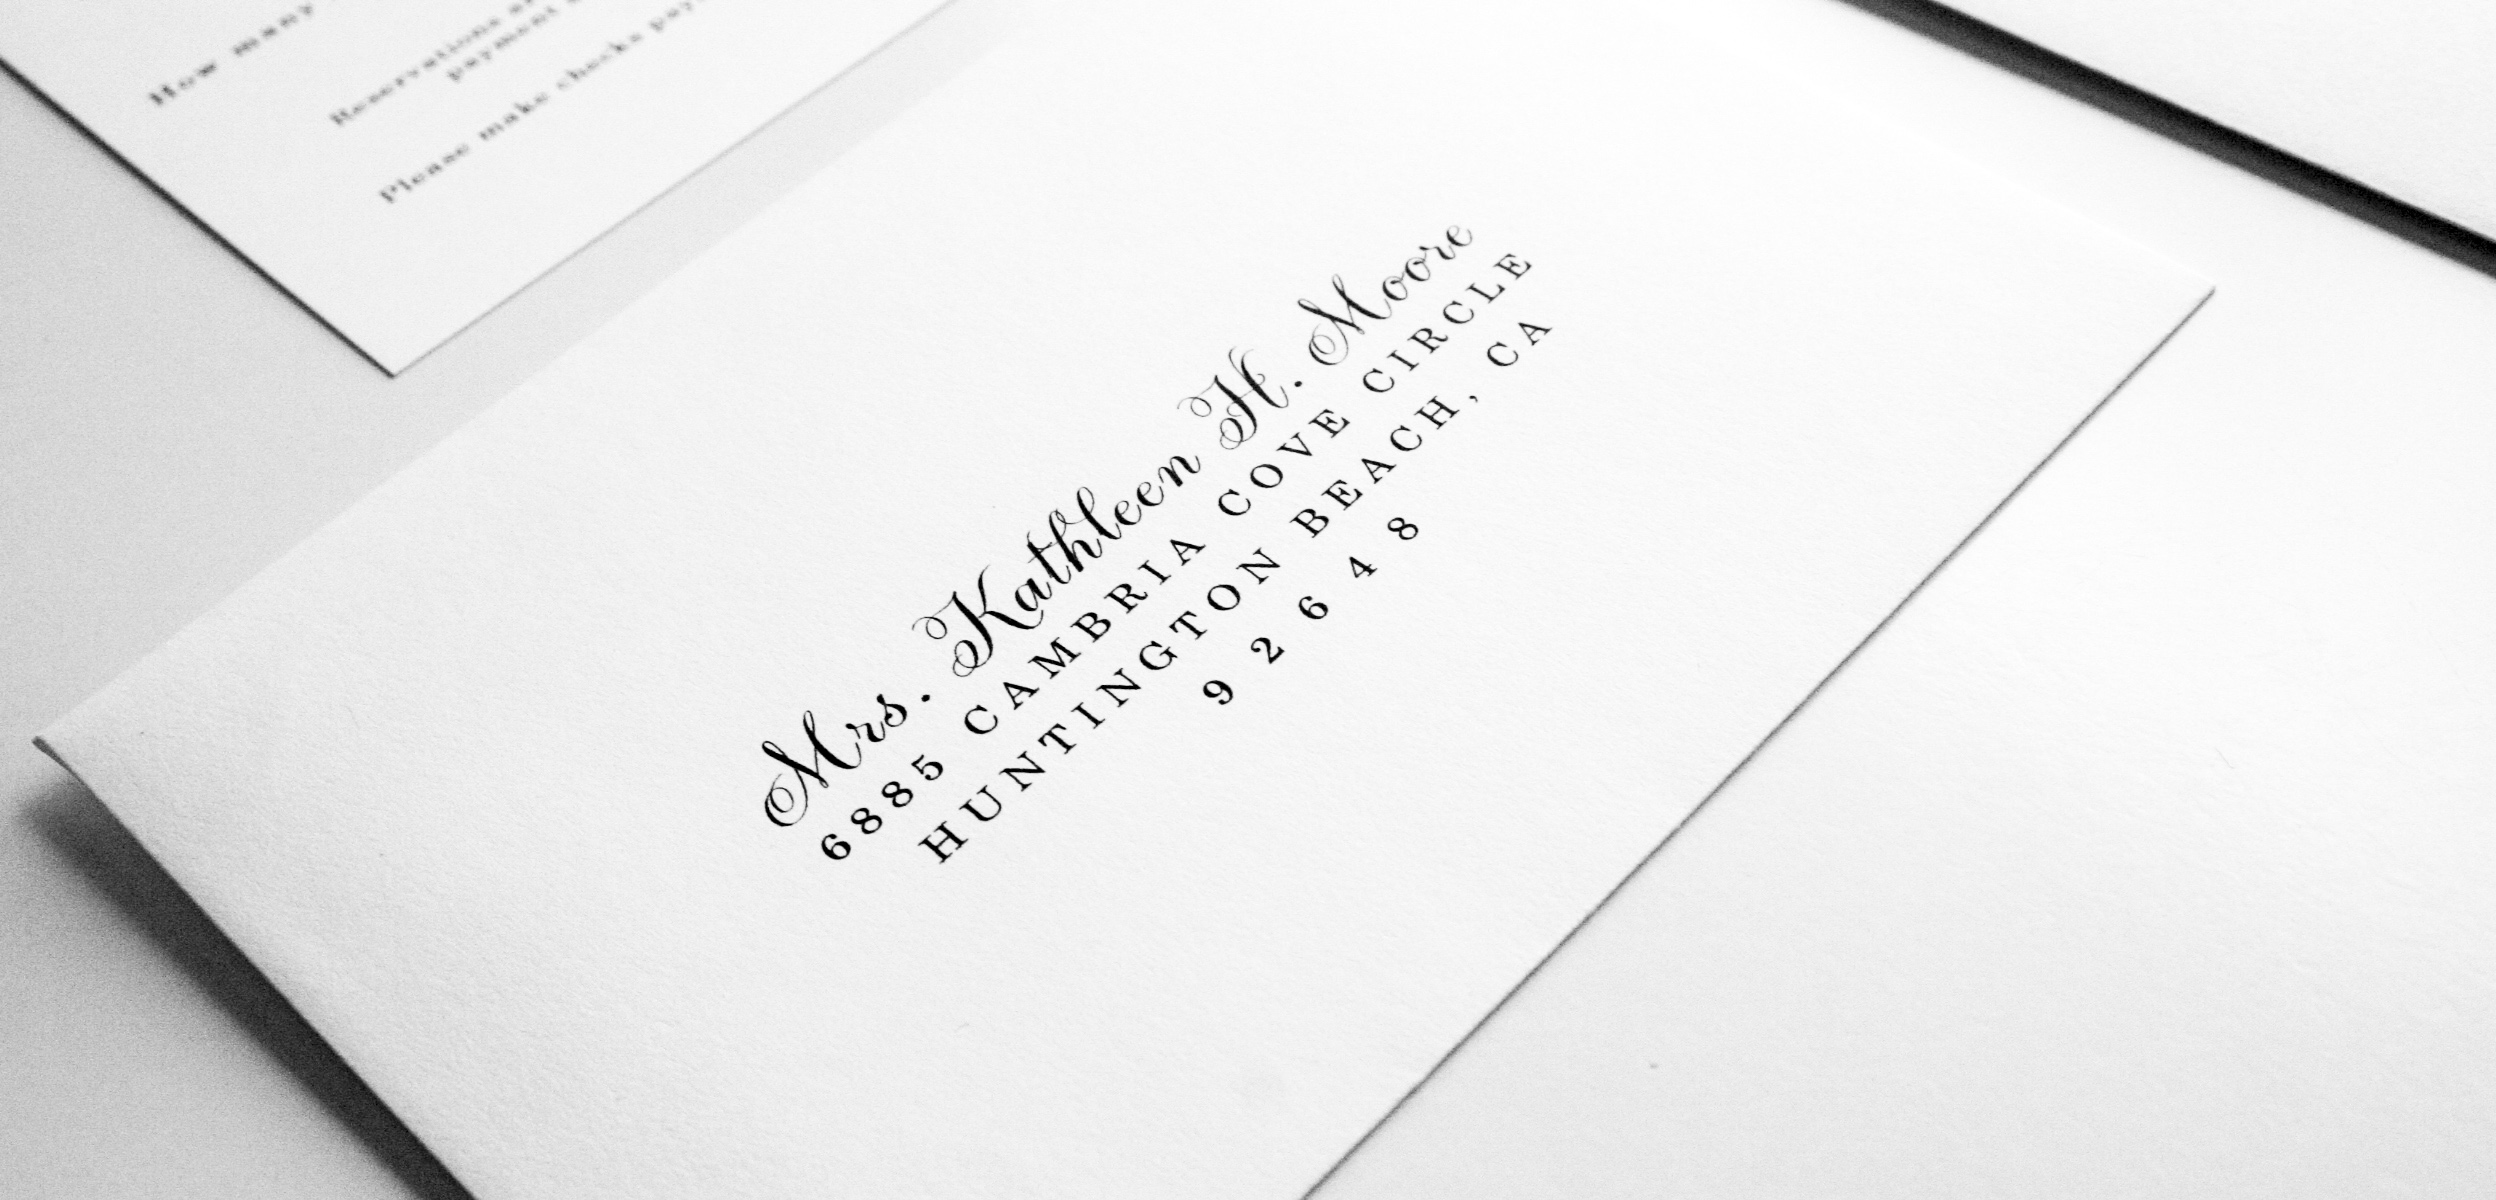 How many
Reservations
payment
Please make checks
Mrs. Kathleen H. Moore
6885 CAMBRIA COVE CIRCLE
HUNTINGTON BEACH, CA
9 2 6 4 8